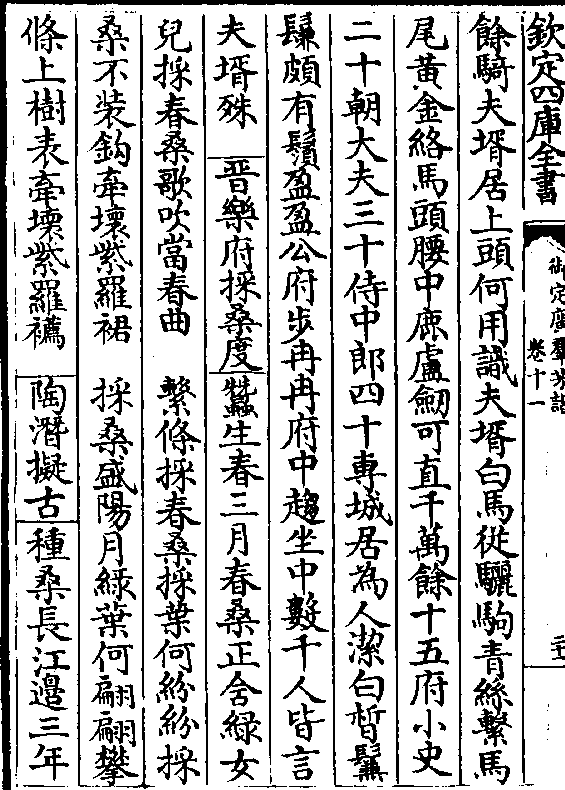 欽定四庫全書
御定廣羣芳譜
卷十一
餘騎夫壻居上頭何用識夫壻白馬從驪駒青絲繫馬
尾黃金絡馬頭腰中鹿盧劒可直千萬餘十五府小史
二十朝大夫三十侍中郎四十専城居為人潔白晳鬑
鬑頗有鬚盈盈公府步冉冉府中趨坐中數千人皆言
夫壻殊 晉樂府採桑度 蠶生春三月春桑正含綠女
兒採春桑歌吹當春曲 繫條採春桑採葉何紛紛採
桑不装鈎牽壞紫羅裙 採桑盛陽月綠葉何翩翩攀
條上樹表牽壞紫羅襦 陶潛擬古 種桑長江邉三年